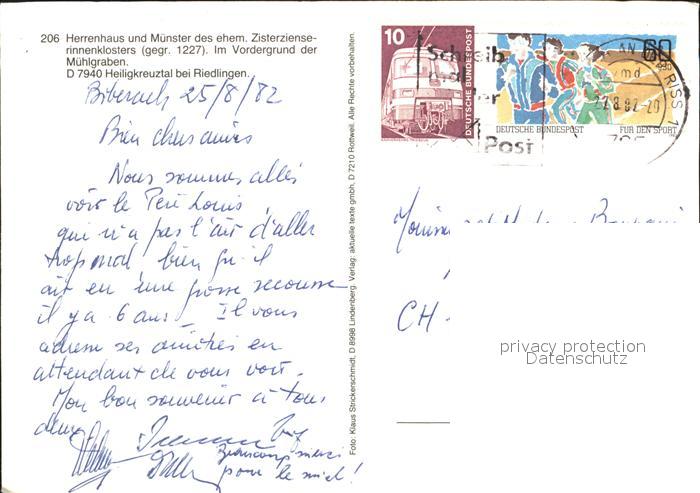 206 Herrenhaus und Münster des ehem. Zisterziense-
rinnenklosters (gegr. 1227). Im Vordergrund der
Mühlgraben.
D 7940 Heiligkreuztal bei Riedlingen.
Biberach 25/8/82
Bien chers amis
Nous sommes allés
voir le Père Louis
qui n'a pas l'air d'aller
trop mal, bien qu'il
ait eu une grosse secousse
il y a 6 ans. Il vous
adresse ses amitiés en
attendant de vous voir.
Mon bon souvenir à tous
deux
Beaucoup merci
pour le miel!
Foto: Klaus Strickerschmidt, D 8998 Lindenberg. Verlag: aktuelle texte gmbh, D 7210 Rottweil. Alle Rechte vorbehalten.
10
DEUTSCHE BUNDESPOST
Schreib
Post
60
DEUTSCHE BUNDESPOST FÜR DEN SPORT
AN RISS 1
22.8.82-20
CH.
privacy protection
Datenschutz